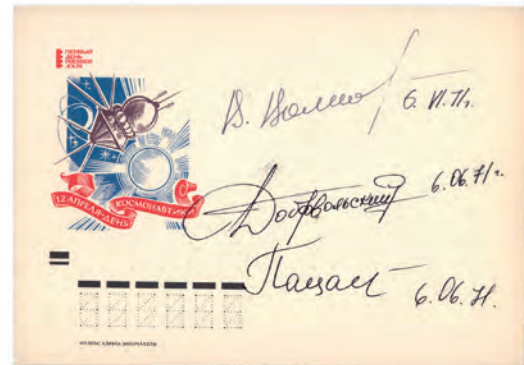 ПЕРВЫЙ
ДЕНЬ
12 АПРЕЛЯ-ДЕНЬ КОСМОНАВТИКИ
В. Волков 6. VI. 71г.
Добровольский 6.06.71г.
Пацаев 6.06.71.